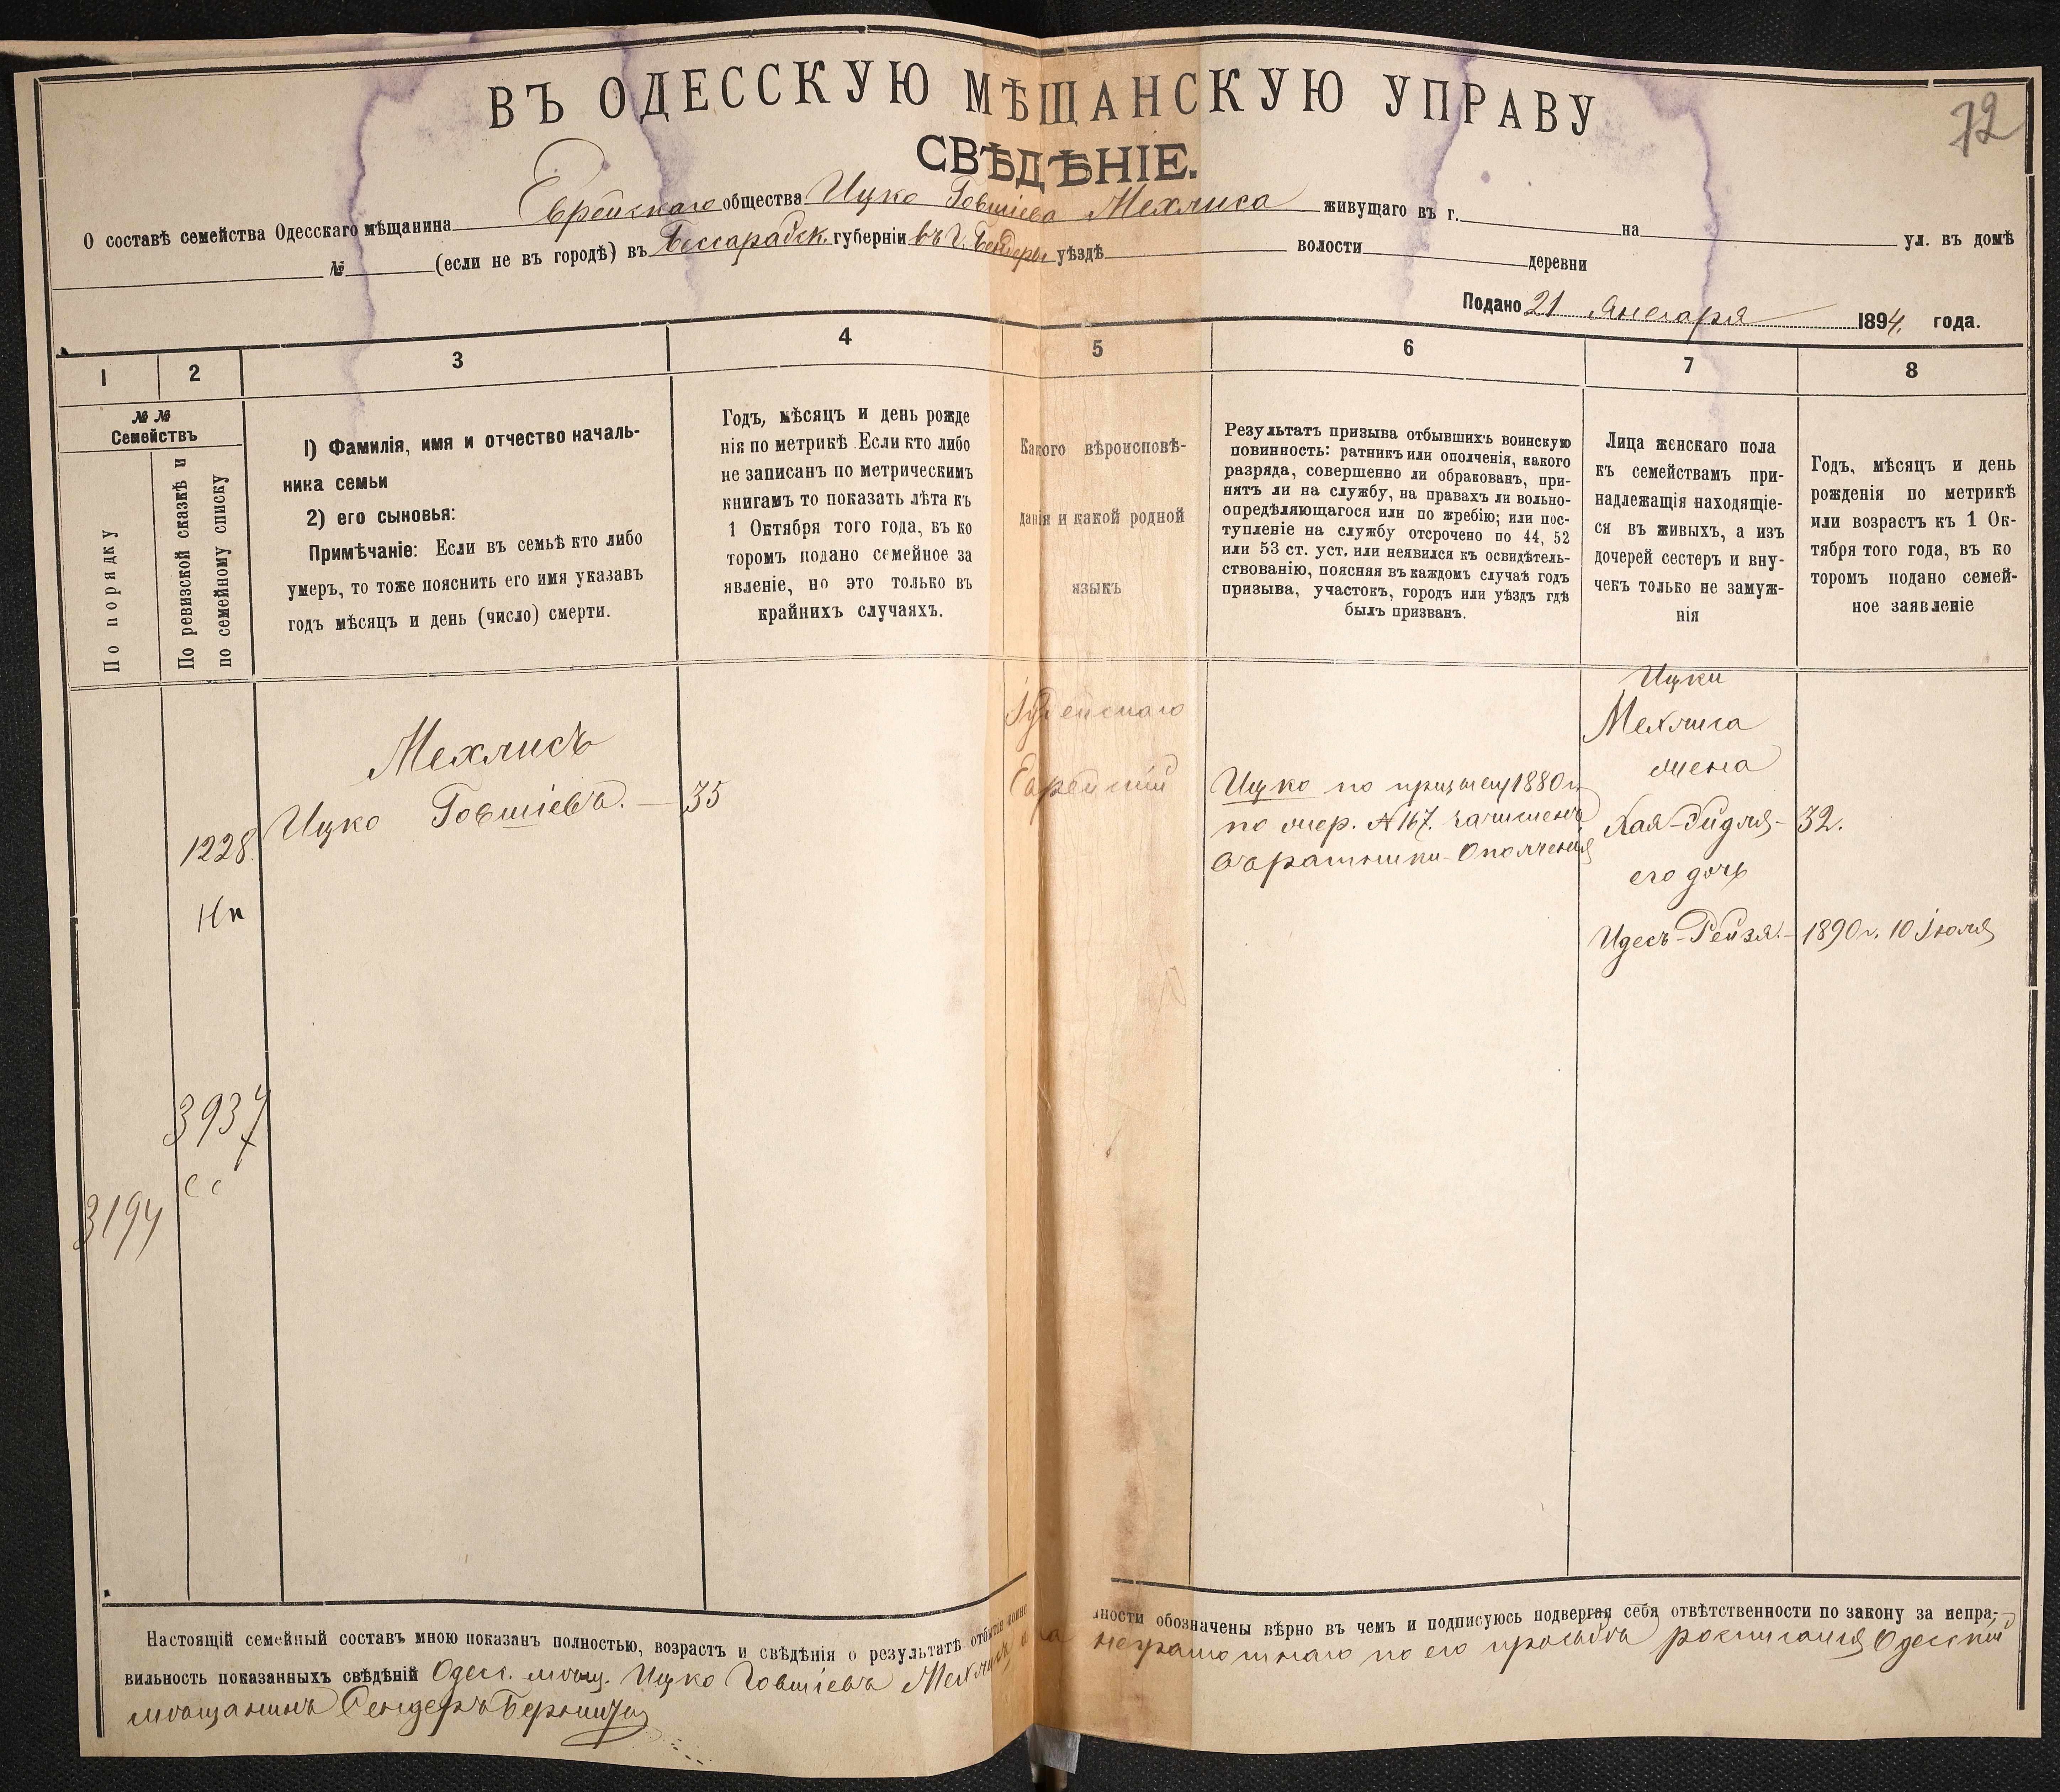 72
ВЪ ОДЕССКУЮ МѢЩАНСКУЮ УПРАВУ
СВѢДѢНІЕ.
О составѣ семейства Одесскаго мѣщанина Еврейскаго общества Ицко Говшіева Мехлиса живущаго въ г. на ул. въ домѣ
№ (если не въ городѣ) въ Бессарабск. губерніи въ г. Бендеры уѣздѣ волости деревни
Подано 21 Января 1894 года.
1 2 3 4 5 6 7 8
№ №
Семействъ
По порядку
По ревизской сказкѣ и
по семейному списку
1) Фамилія, имя и отчество началь-
ника семьи
2) его сыновья:
Примѣчаніе: Если въ семьѣ кто либо
умеръ, то тоже пояснить его имя указавъ
годъ мѣсяцъ и день (число) смерти.
Годъ, мѣсяцъ и день рожде
нія по метрикѣ. Если кто либо
не записанъ по метрическимъ
книгамъ то показать лѣта къ
1 Октября того года, въ ко
торомъ подано семейное за
явленіе, но это только въ
крайнихъ случаяхъ.
Какого вѣроисповѣ-
данія и какой родной
языкъ
Результатъ призыва отбывшихъ воинскую
повинность: ратникъ или ополченія, какого
разряда, совершенно ли обракованъ, при-
нятъ ли на службу, на правахъ ли вольно-
опредѣляющагося или по жребію; или пос-
тупленіе на службу отсрочено по 44, 52
или 53 ст. уст. или неявился къ освидѣтель-
ствованію, поясняя въ каждомъ случаѣ годъ
призыва, участокъ, городъ или уѣздъ гдѣ
былъ призванъ.
Лица женскаго пола
къ семействамъ при-
надлежащія находящіе-
ся въ живыхъ, а изъ
дочерей сестеръ и вну-
чекъ только не замуж-
нія
Годъ, мѣсяцъ и день
рожденія по метрикѣ
или возрастъ къ 1 Ок-
тября того года, въ ко
торомъ подано семей-
ное заявленіе
1228.
3937
сс
3194
Мехлисъ
Ицко Говшіевъ. — 35
Іудейскаго
Еврейскій
Ицко по призыву 1880 г.
по жер. № 167. зачисленъ
въ ратники Ополченія
Ицки
Мехлиса
жена
Хая-Эйдля- 32.
его дочь
Идесъ-Рейзя.- 1890 г. 10 Іюля
Настоящій семейный составъ мною показанъ полностью, возрастъ и свѣдѣнія о результатѣ отбытія воинс
лности обозначены вѣрно въ чемъ и подписуюсь подвергая себя отвѣтственности по закону за непра-
вильность показанныхъ свѣдѣній Одес. мѣщ. Ицко Говшіевъ Мехлисъ а за неграмотнаго по его просьбѣ росписался Одесскій
мѣщанинъ Сендеръ